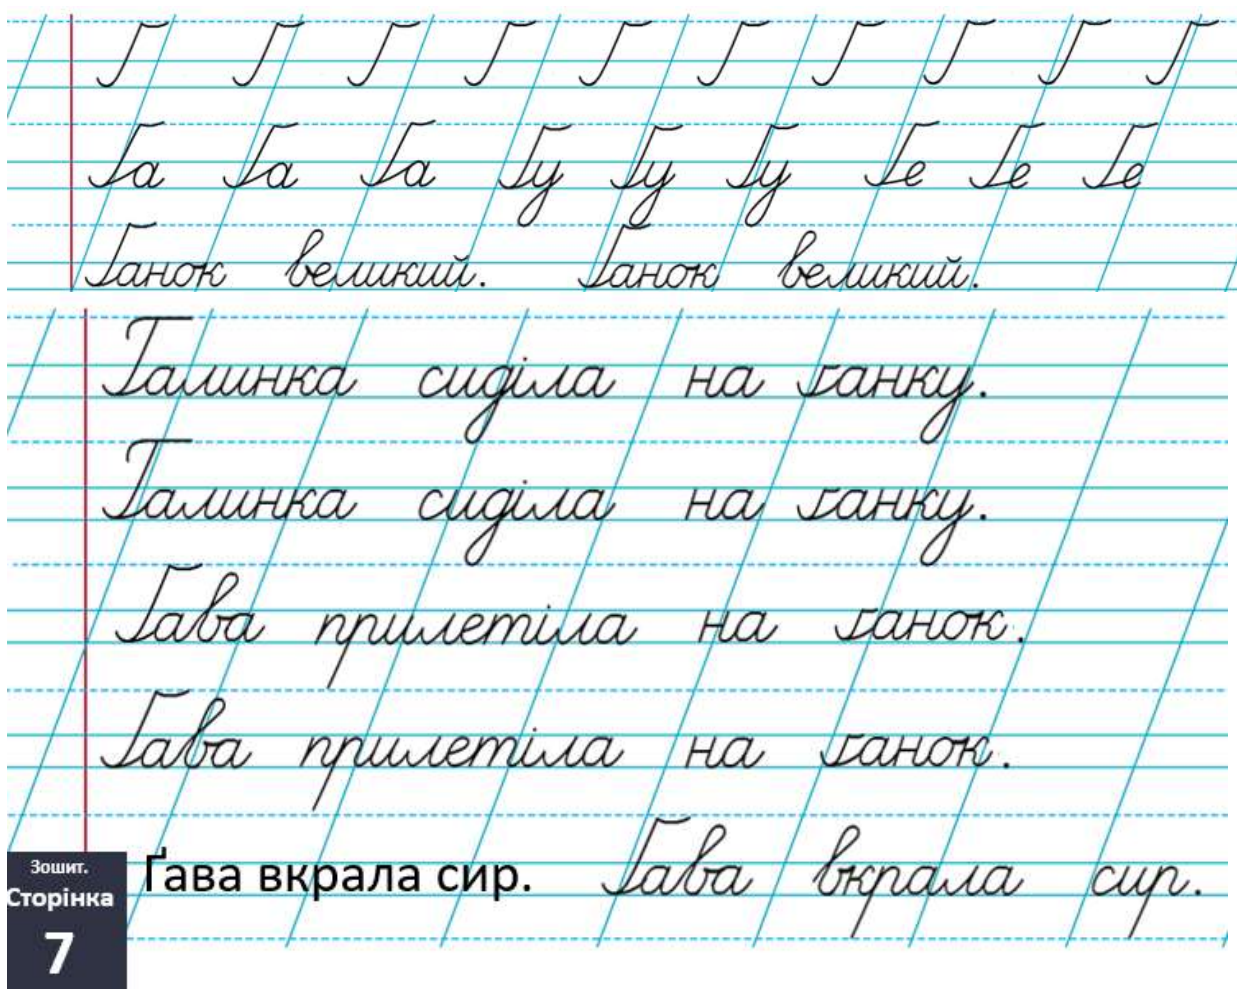 Ґ Ґ Ґ Ґ Ґ Ґ Ґ Ґ Ґ Ґ
Ґа Ґа Ґа Ґу Ґу Ґу Ґе Ґе Ґе
Ґанок великий. Ґанок великий.
Галинка сиділа на ґанку.
Галинка сиділа на ґанку.
Ґава прилетіла на ґанок.
Ґава прилетіла на ґанок.
Ґава вкрала сир. Ґава вкрала сир.
Зошит.
Сторінка
7